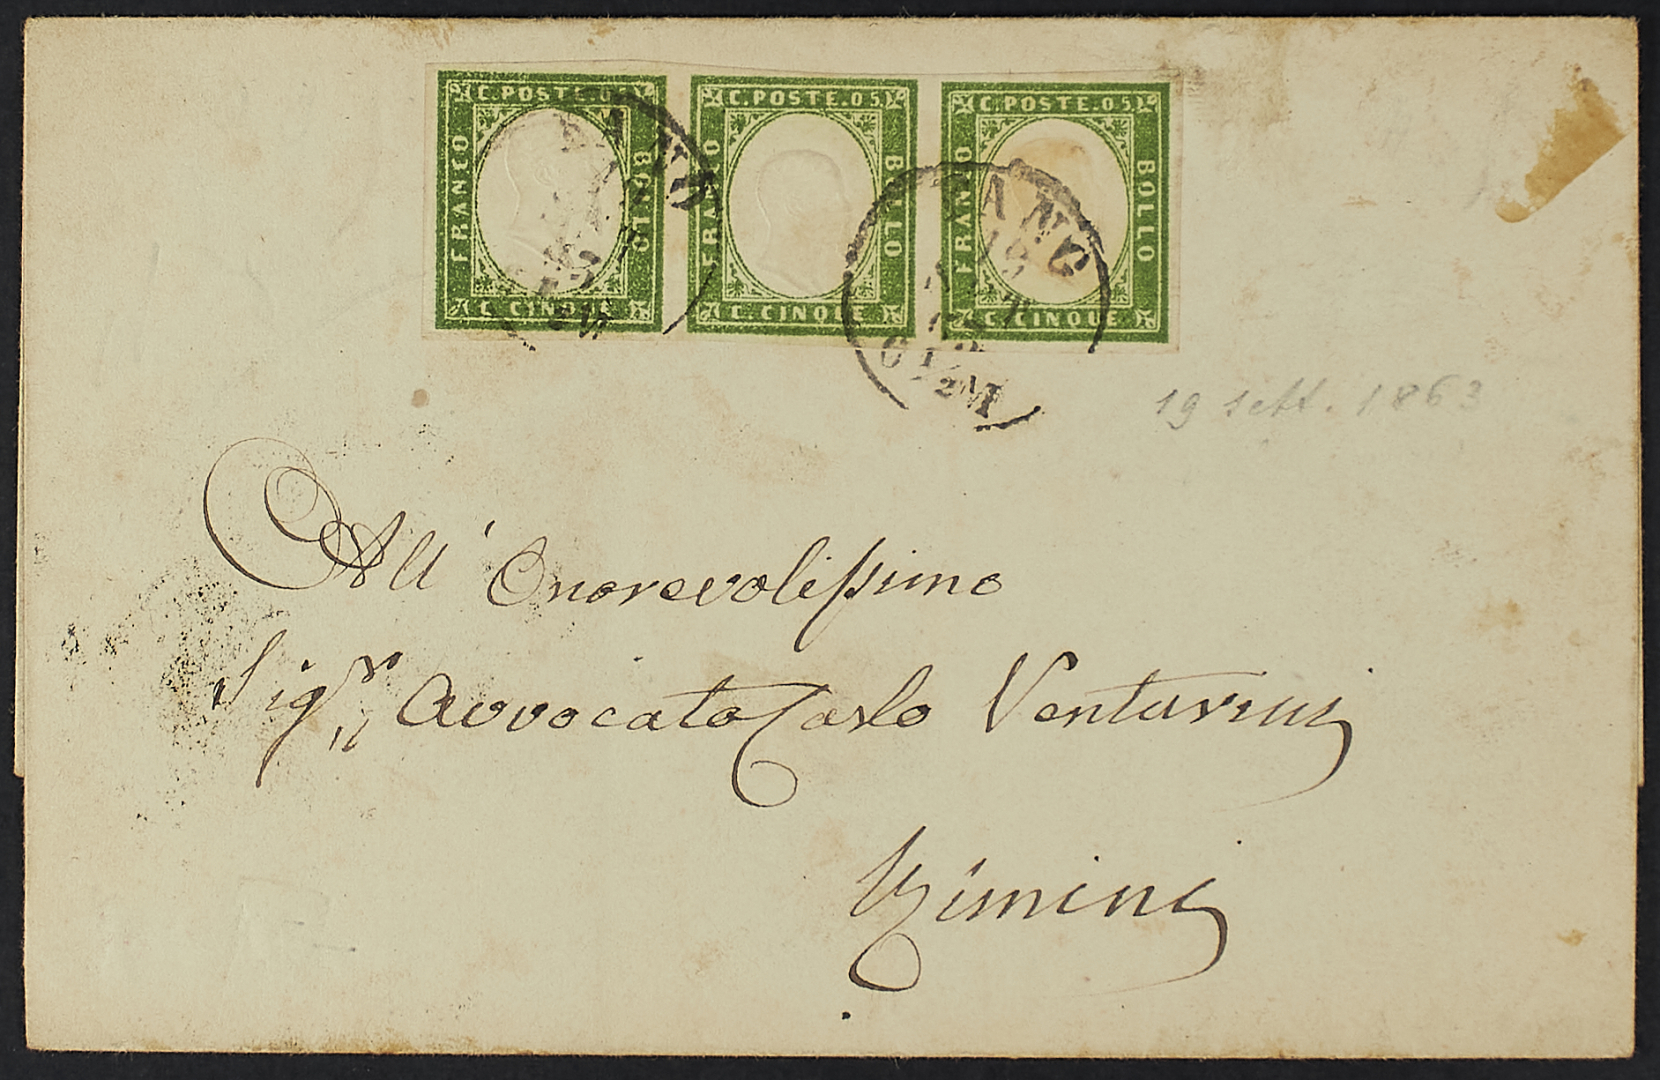 C. POSTE. 05.
FRANCO
BOLLO
C. CINQUE
C. POSTE. 05.
FRANCO
BOLLO
C. CINQUE
C. POSTE. 05.
FRANCO
BOLLO
C. CINQUE
FANO
FANO
19
SET
63
6 1/2 M
19 sett. 1863
All' Onorevolissimo
Sigr. Avvocato Carlo Venturini
Rimini